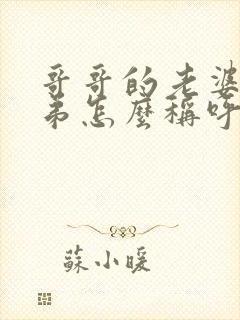 哥哥的老婆
弟怎麼稱呼
蘇小暖